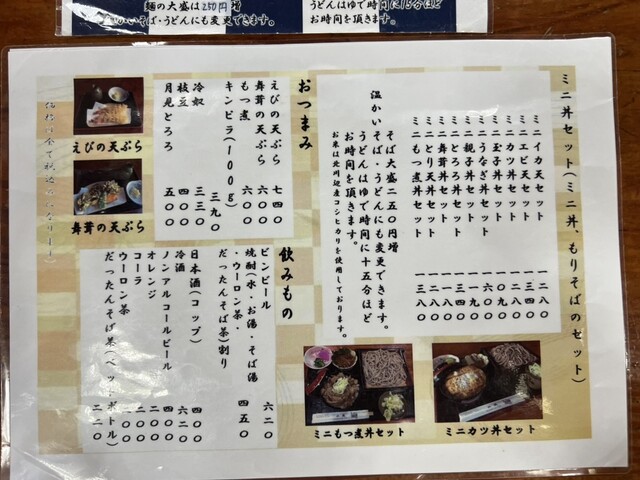 麺の大盛は250円増
かいそば・うどんにも変更できます。
うどんはゆで時間に15分ほど
お時間を頂きます。
ミニ丼セット(ミニ丼、もりそばのセット)
ミニイカ天セット 一二八〇
ミニエビ天セット 一三四〇
ミニカツ丼セット 一二八〇
ミニ玉子丼セット 一一〇〇
ミニうなぎ丼セット 一六〇〇
ミニ親子丼セット 一一九〇
ミニとろろ丼セット
ミニ舞茸丼セット
ミニとり天丼セット
ミニもつ煮丼セット 一三八〇
そば大盛二五〇円増
温かいそば・うどんにも変更できます。
うどんはゆで時間に十五分ほど
お時間を頂きます。
お米は北川辺産コシヒカリを使用しております。
おつまみ
えびの天ぷら 七四〇
舞茸の天ぷら 六〇〇
もつ煮 六〇〇
キンピラ(100g) 三九〇
冷奴 三三〇
枝豆 四〇〇
月見とろろ 五〇〇
飲みもの
ビンビール 六二〇
焼酎(水・お湯・そば湯
・ウーロン茶・
だったんそば茶)割り 四五〇
日本酒(コップ) 四〇〇
冷酒 六二〇
ノンアルコールビール 四〇〇
オレンジ 二〇〇
コーラ 二〇〇
ウーロン茶 二〇〇
だったんそば茶(ペットボトル) 二二〇
えびの天ぷら
舞茸の天ぷら
価格は全て税込みになります)
ミニもつ煮丼セット
ミニカツ丼セット